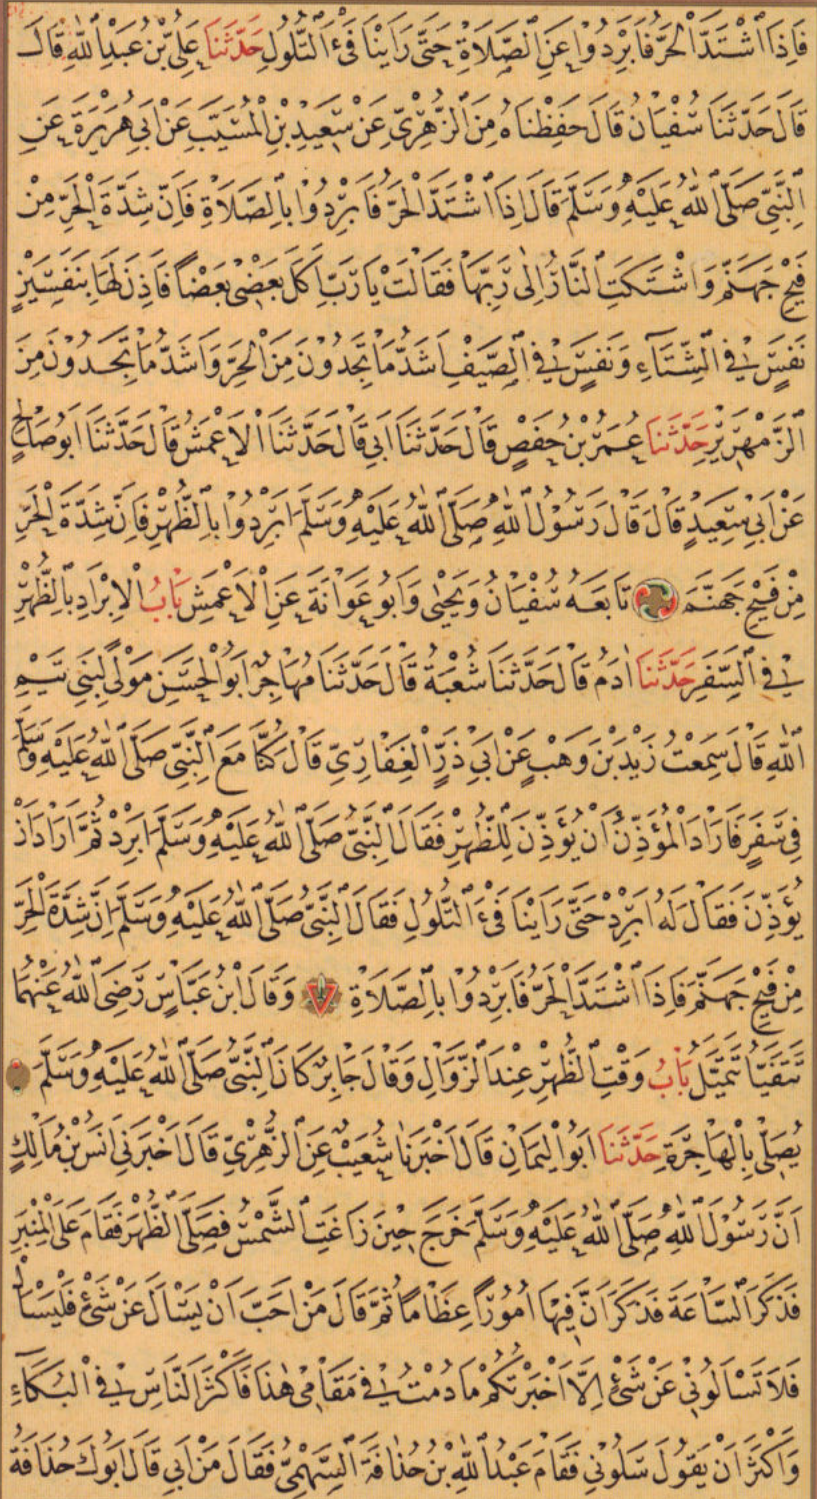 فَاِذَا اشْتَدَّ الْحَرُّ فَاَبْرِدُوا عَنِ الصَّلَاةِ حَتّٰى رَاَيْنَا فَىْءَ التُّلُولِ حَدَّثَنَا عَلِىُّ بْنُ عَبْدِ اللّٰهِ قَالَ
قَالَ حَدَّثَنَا سُفْيَانُ قَالَ حَفِظْنَاهُ مِنَ الزُّهْرِىِّ عَنْ سَعِيدِ بْنِ الْمُسَيَّبِ عَنْ اَبِى هُرَيْرَةَ عَنِ
النَّبِىِّ صَلَّى اللّٰهُ عَلَيْهِ وَسَلَّمَ قَالَ اِذَا اشْتَدَّ الْحَرُّ فَاَبْرِدُوا بِالصَّلَاةِ فَاِنَّ شِدَّةَ الْحَرِّ مِنْ
فَيْحِ جَهَنَّمَ وَاشْتَكَتِ النَّارُ اِلٰى رَبِّهَا فَقَالَتْ يَا رَبِّ اَكَلَ بَعْضِى بَعْضًا فَاَذِنَ لَهَا بِنَفَسَيْنِ
نَفَسٍ فِى الشِّتَاءِ وَنَفَسٍ فِى الصَّيْفِ اَشَدُّ مَا تَجِدُونَ مِنَ الْحَرِّ وَاَشَدُّ مَا تَجِدُونَ مِنَ
الزَّمْهَرِيرِ حَدَّثَنَا عُمَرُ بْنُ حَفْصٍ قَالَ حَدَّثَنَا اَبِى قَالَ حَدَّثَنَا الْاَعْمَشُ قَالَ حَدَّثَنَا اَبُو صَالِحٍ
عَنْ اَبِى سَعِيدٍ قَالَ قَالَ رَسُولُ اللّٰهِ صَلَّى اللّٰهُ عَلَيْهِ وَسَلَّمَ اَبْرِدُوا بِالظُّهْرِ فَاِنَّ شِدَّةَ الْحَرِّ
مِنْ فَيْحِ جَهَنَّمَ تَابَعَهُ سُفْيَانُ وَيَحْيٰى وَاَبُو عَوَانَةَ عَنِ الْاَعْمَشِ بَابُ الْاِبْرَادِ بِالظُّهْرِ
فِى السَّفَرِ حَدَّثَنَا اٰدَمُ قَالَ حَدَّثَنَا شُعْبَةُ قَالَ حَدَّثَنَا مُهَاجِرٌ اَبُو الْحَسَنِ مَوْلًى لِبَنِى تَيْمِ
اللّٰهِ قَالَ سَمِعْتُ زَيْدَ بْنَ وَهْبٍ عَنْ اَبِى ذَرٍّ الْغِفَارِىِّ قَالَ كُنَّا مَعَ النَّبِىِّ صَلَّى اللّٰهُ عَلَيْهِ وَسَلَّمَ
فِى سَفَرٍ فَاَرَادَ الْمُؤَذِّنُ اَنْ يُؤَذِّنَ لِلظُّهْرِ فَقَالَ النَّبِىُّ صَلَّى اللّٰهُ عَلَيْهِ وَسَلَّمَ اَبْرِدْ ثُمَّ اَرَادَ اَنْ
يُؤَذِّنَ فَقَالَ لَهُ اَبْرِدْ حَتّٰى رَاَيْنَا فَىْءَ التُّلُولِ فَقَالَ النَّبِىُّ صَلَّى اللّٰهُ عَلَيْهِ وَسَلَّمَ اِنَّ شِدَّةَ الْحَرِّ
مِنْ فَيْحِ جَهَنَّمَ فَاِذَا اشْتَدَّ الْحَرُّ فَاَبْرِدُوا بِالصَّلَاةِ وَقَالَ ابْنُ عَبَّاسٍ رَضِىَ اللّٰهُ عَنْهُمَا
تَتَفَيَّاُ تَتَمَيَّلُ بَابُ وَقْتِ الظُّهْرِ عِنْدَ الزَّوَالِ وَقَالَ جَابِرٌ كَانَ النَّبِىُّ صَلَّى اللّٰهُ عَلَيْهِ وَسَلَّمَ
يُصَلِّى بِالْهَاجِرَةِ حَدَّثَنَا اَبُو الْيَمَانِ قَالَ اَخْبَرَنَا شُعَيْبٌ عَنِ الزُّهْرِىِّ قَالَ اَخْبَرَنِى اَنَسُ بْنُ مَالِكٍ
اَنَّ رَسُولَ اللّٰهِ صَلَّى اللّٰهُ عَلَيْهِ وَسَلَّمَ خَرَجَ حِينَ زَاغَتِ الشَّمْسُ فَصَلَّى الظُّهْرَ فَقَامَ عَلَى الْمِنْبَرِ
فَذَكَرَ السَّاعَةَ فَذَكَرَ اَنَّ فِيهَا اُمُورًا عِظَامًا ثُمَّ قَالَ مَنْ اَحَبَّ اَنْ يَسْاَلَ عَنْ شَىْءٍ فَلْيَسْاَلْ
فَلَا تَسْاَلُونِى عَنْ شَىْءٍ اِلَّا اَخْبَرْتُكُمْ مَا دُمْتُ فِى مَقَامِى هٰذَا فَاَكْثَرَ النَّاسُ فِى الْبُكَاءِ
وَاَكْثَرَ اَنْ يَقُولَ سَلُونِى فَقَامَ عَبْدُ اللّٰهِ بْنُ حُذَافَةَ السَّهْمِىُّ فَقَالَ مَنْ اَبِى قَالَ اَبُوكَ حُذَافَةُ